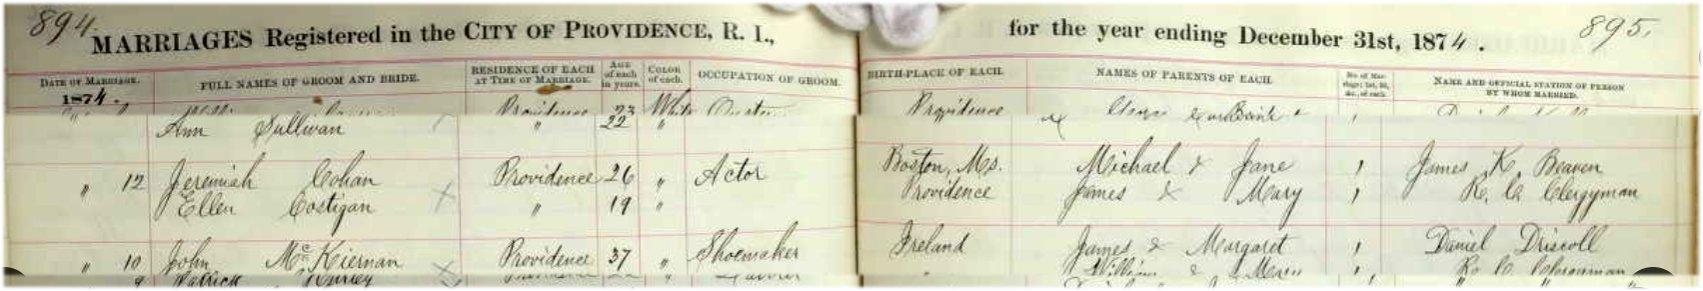 894.
895.
MARRIAGES Registered in the CITY OF PROVIDENCE, R. I., for the year ending December 31st, 1874.
DATE OF MARRIAGE. FULL NAMES OF GROOM AND BRIDE. RESIDENCE OF EACH AT TIME OF MARRIAGE. AGE of each in years. COLOR of each. OCCUPATION OF GROOM. BIRTH-PLACE OF EACH. NAMES OF PARENTS OF EACH. No. of Marriage; 1st, 2d, &c., of each. NAME AND OFFICIAL STATION OF PERSON BY WHOM MARRIED.
1874.
Providence 23 White Providence
" Ann Sullivan " 22 "
" 12 Jeremiah Cohan Providence 26 " Actor Boston, Ms. Michael & Jane 1 James K. Beaven
Ellen Costigan " 19 " Providence James & Mary 1 R. C. Clergyman
" 10 John McKiernan Providence 37 " Shoemaker Ireland James & Margaret 1 Daniel Driscoll
" William & Mary 1 R. C. Clergyman
9 Patrick